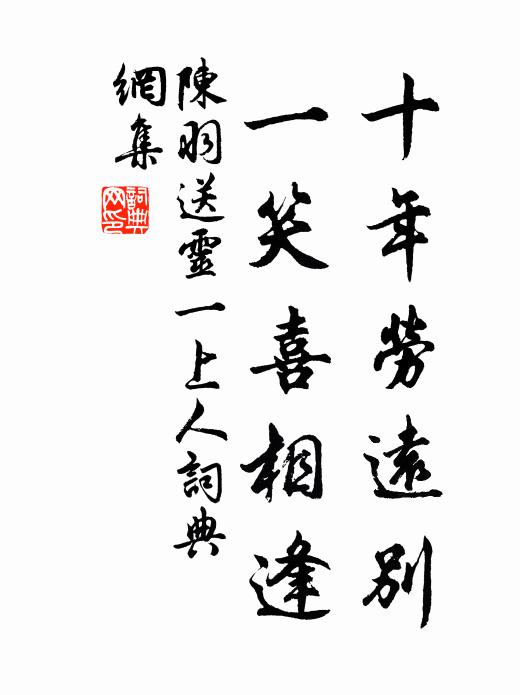 十年勞遠別
一笑喜相逢
陳羽送靈一上人詞典
網集
詞典網印